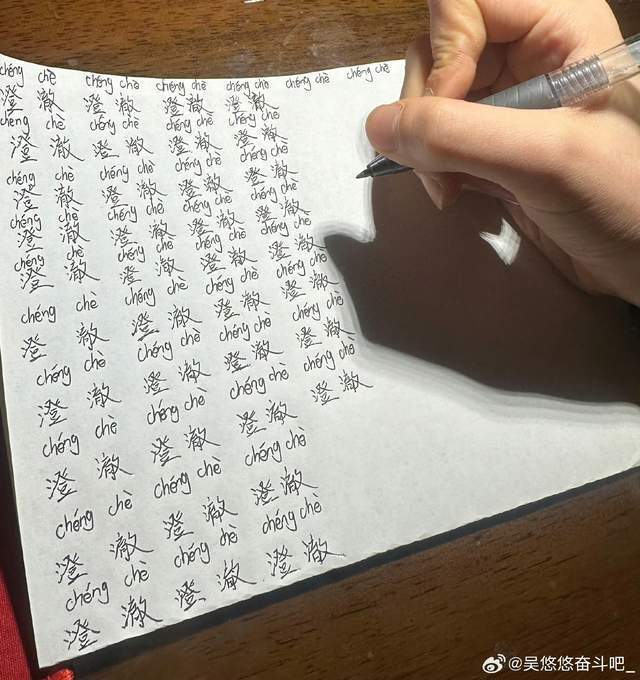 chéng chè chéng chè chéng chè chéng chè chéng chè chéng chè
澄澈 澄澈 澄澈 澄澈
chéng chè chéng chè chéng chè chéng chè
澄澈 澄澈 澄澈 澄澈
chéng chè chéng chè chéng chè chéng chè
澄澈 澄澈 澄澈 澄澈
chéng chè chéng chè chéng chè chéng chè
澄澈 澄澈 澄澈 澄澈
chéng chè chéng chè chéng chè chéng chè
澄澈 澄澈 澄澈 澄澈
chéng chè chéng chè chéng chè chéng chè
澄澈 澄澈 澄澈 澄澈
chéng chè chéng chè chéng chè chéng chè
澄澈 澄澈 澄澈 澄澈
chéng chè chéng chè chéng chè chéng chè
澄澈 澄澈 澄澈 澄澈
chéng chè chéng chè chéng chè
澄澈 澄澈 澄澈
chéng chè chéng chè chéng chè
澄澈 澄澈 澄澈
@吴悠悠奋斗吧_